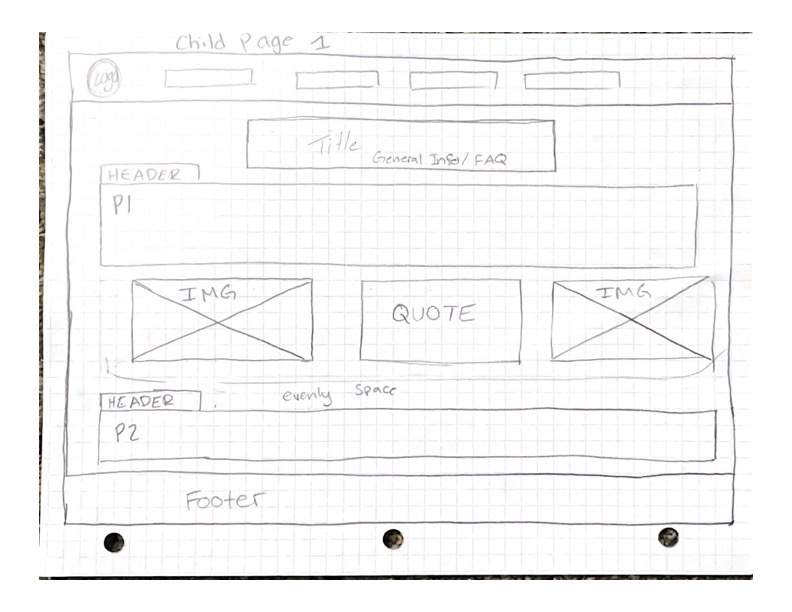 Child Page 1
Logo
Title
General Info/ FAQ
HEADER
P1
IMG
QUOTE
IMG
evenly Space
HEADER
P2
Footer